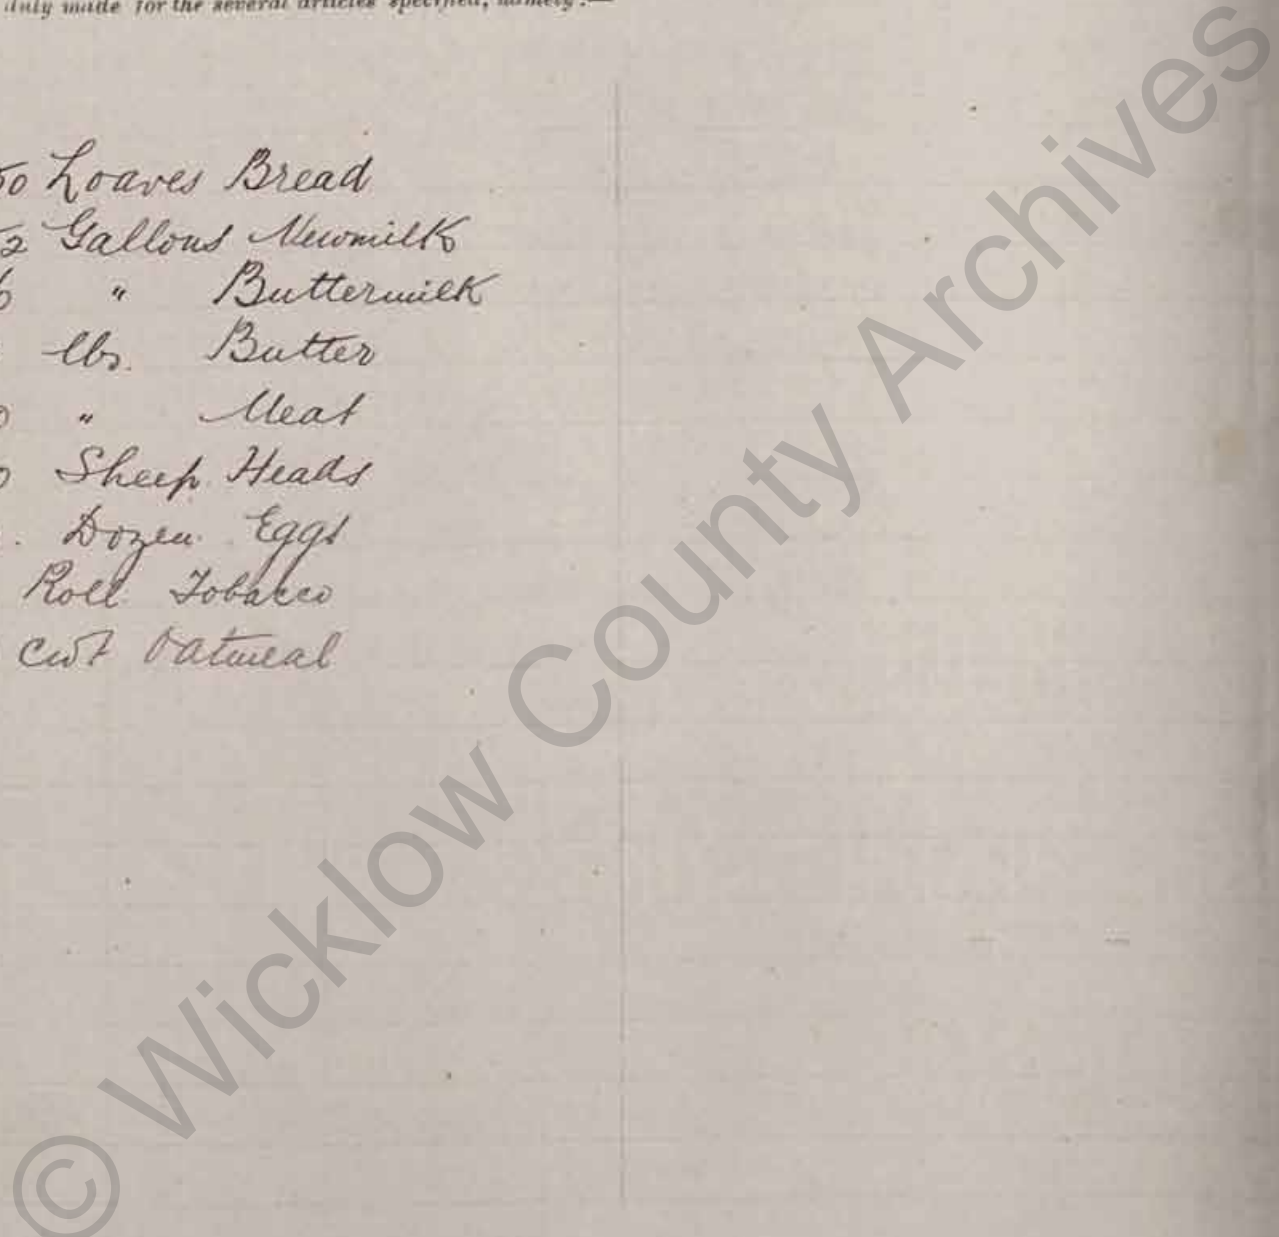 duly made for the several articles specified, namely:—
50 Loaves Bread
Gallons Newmilk
" Buttermilk
lbs. Butter
" Meat
Sheep Heads
Dozen Eggs
Roll Tobacco
Cwt Oatmeal
© Wicklow County Archives